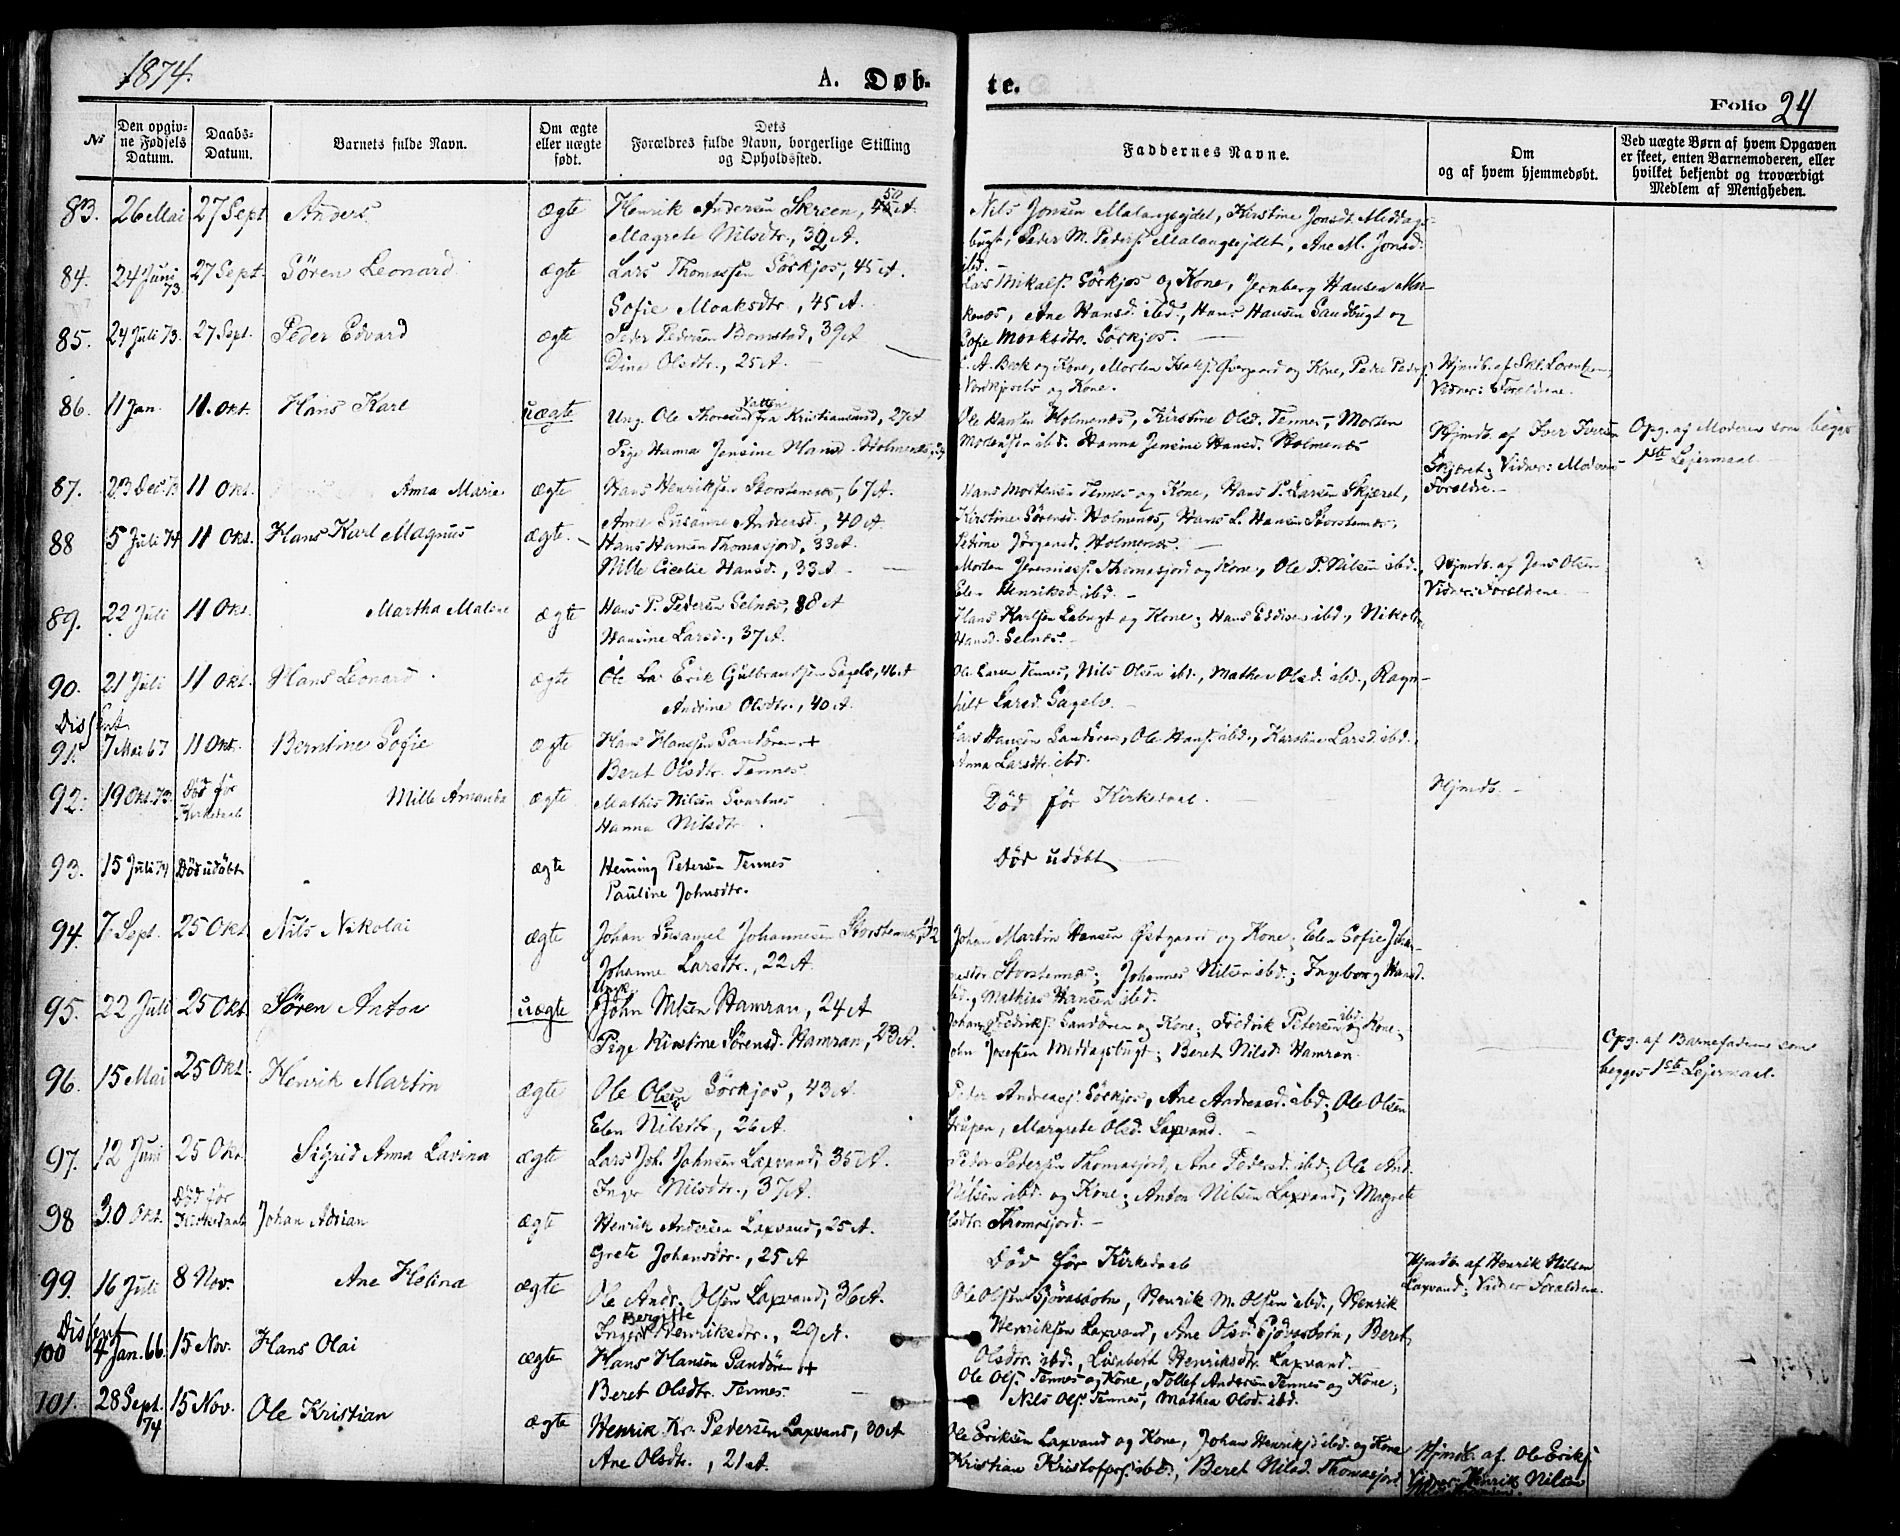 1874.
A. Døb-
te.
Folio 24
№
Den opgiv-
ne Fødsels
Datum.
Daabs-
Datum.
Barnets fulde Navn.
Om ægte
eller uægte
født.
Dets
Forældres fulde Navn, borgerlige Stilling
og Opholdsted.
Faddernes Navne.
Om
og af hvem hjemmedøbt.
Ved uægte Børn af hvem Opgaven
er skeet, enten Barnemoderen, eller
hvilket bekjendt og troværdigt
Medlem af Menigheden.
83. 26 Mai 27 Sept Anders ægte Henrik Andersen Skreen, 50 A.
Magrete Nilsdtr., 32 A.
Nils Jonsen Malangseidet, Kirstine Jonsdt. Middags-
bugt, Peder M. Peders. Malangseidet, Ane M. Jonsd.
ibd.
84. 24 Juni 73 27 Sept. Søren Leonard ægte Lars Thomassen Sørkjos, 45 A.
Sofie Moaksdtr., 45 A.
Lars Mikals. Sørkjos og Kone, Jernberg Hansen Mar-
kenæs, Ane Hansd. ibd., Hans Hansen Sandbugt og
Sofie Moaksdtr. Sørkjos.
85. 24 Juli 73. 27 Sept. Peder Edvard ægte Peder Pedersen Bomstad, 39 A
Dina Olsdtr., 25 A.
A. Bæk og Kone, Morten Isaks. Øvergaard og Kone, Peder Peders.
Nordkjoselv og Kone.
Hjmdb. af Skl. Lorentzen,
Vidner: Forældrene.
86. 11 Jan. 11. Okt. Hans Karl uægte Ung. Ole Thoresen Vatten fra Kristiansund, 27 A
Pige Hanna Jensine Hansd. Holmenæs,
Ole Hansen Holmenæs, Kirstine Olsd. Tennes, Morten
Mortensen ibd. Hanna Jensine Hansd. Holmenæs
Hjmdb. af Iver Iversen
Skjæret; Vidner: Moderens
Forældre.
Opg. af Moderen som begges
1ste Lejermaal
87. 23 Dec 73 11 Okt. Anna Marie ægte Hans Henriksen Storstennæs, 67 A.
Ane Susanne Andersd., 40 A
Hans Mortensen Tennes og Kone, Hans P. Larsen Skjæret,
Kirstine Sørensd. Holmenæs, Hans L. Hansen Storstennæs,
Petrine Jørgensd. Holmenæs.
88 5 Juli 74 11 Okt. Hans Karl Magnus ægte. Hans Hansen Thomasjord, 33 A.
Nille Cicelie Hansd., 33 A
Morten Jeremiass. Thomasjord og Kone, Ole P. Nilsen ibd.,
Elen Henriksd. ibd.
Hjmdb. af Jens Olsen
Vidner: Forældrene
89. 22 Juli 11 Okt. Martha Maline ægte Hans P. Pedersen Selnæs, 38 A
Hansine Larsd., 37 A.
Hans Karlsen Labugt og Kone; Hans Eddisen ibd., Nikoline
Hansd. Selnæs.
90. 21 Juli 11 Okt. Hans Leonard ægte Ole La Erik Gulbransen Sagelv, 46 A
Andrine Olsdtr., 40 A.
Ole Larsen Tennes, Nils Olsen ibd., Mathea Olsd. ibd., Ragn-
hild Larsd. Sagelv.
Dissent
91. 7 Mar 67 11 Okt. Berntine Sofie ægte Hans Hansen Sandøren +
Beret Olsdtr. Tennes
Lars Hansen Sandøren, Ole Hans. ibd., Karoline Larsd. ibd.,
Anna Larsdtr. ibd.
92. 19 Okt. 73. Død før Kirkedaab Mille Amanda ægte. Mathis Nilsen Svartnes
Hanna Nilsdtr.
Død før Kirkedaab.
Hjmdb.
93. 15 Juli 74 Død udøbt ægte Heming Petersen Tennes
Pauline Johnsdtr.
Død udøbt
94. 7 Sept. 25 Okt Nils Nikolai ægte Johan Susamel Johannesen Storstennæs, 32
Johanne Larsdtr., 22 A.
Johan Martin Hansen Østgaard og Kone; Elen Sofie Johan-
nesdtr Storstennæs; Johannes Nilsen ibd.; Ingeborg Hansd.
ibd., Mathias Hansen ibd.
95. 22 Juli 25 Okt Søren Anton uægte Ungk. John Nilsen Hamran, 24 A
Pige Kirstine Sørensd. Hamran, 23 A.
Johan Fredriks. Sandøren og Kone; Fredrik Petersen ibd. og Kone;
John Josefsen Middagsbugt; Beret Nilsd. Hamran.
Opg. af Barnefaderen som
begges 1ste Lejermaal.
96. 15 Mai 25 Okt. Henrik Martin ægte Ole Olsen Sørkjos, 43 A
Elen Nilsdtr., 26 A.
Peder Andreass. Sørkjos, Ane Andreasd. ibd; Ole Olsen
Grupen, Margrete Olsd. Laxvand.
97. 12 Juni 25 Okt. Sigrid Anna Lavina ægte Lars Joh. Johnsen Laxvand, 35 A.
Inger Nilsdtr., 37 A.
Peder Pedersen Thomasjord, Ane Pedersd. ibd; Ole And.
Nilsen ibd. og Kone; Anton Nilsen Laxvand, Magrete
Olsdtr. Thomasjord.
98 30 Okt. Død før Kirkedaab Johan Adrian ægte Henrik Andersen Laxvand, 25 A.
Grete Johansdtr., 25 A
Død før Kirkedaab
Hjmdb. af Henrik Nilsen
Laxvand; Vidner Forældrene.
99. 16 Juli 8 Nov. Ane Helina ægte Ole Andr. Olsen Laxvand, 36 A.
Inger Bergitte Henriksdtr., 29 A.
Ole Olsen Sjøvasbotn, Henrik M. Olsen ibd., Henrik
Henriksen Laxvand, Ane Olsd. Sjøvasbotn, Beret
Olsdtr. ibd., Lisabeth Henriksdtr. Laxvand.
Dissent
100 4 Jan. 66. 15 Nov. Hans Olai ægte Hans Hansen Sandøren +
Beret Olsdtr. Tennes
Ole Ols. Tennes og Kone, Tollef Andersen Tennes og Kone,
Nils Ols. Tennes, Mathea Olsd. ibd.
101. 28 Sept. 74 15 Nov. Ole Kristian ægte Henrik Kr. Pedersen Laxvand, 30 A
Ane Olsdtr., 21 A.
Ole Eriksen Laxvand og Kone, Johan Henriks. ibd. og Kone
Kristian Kristofers. ibd., Beret Nilsd. Thomasjord
Hjmdb. af. Ole Eriks.
Vidner: Henrik Nilsen